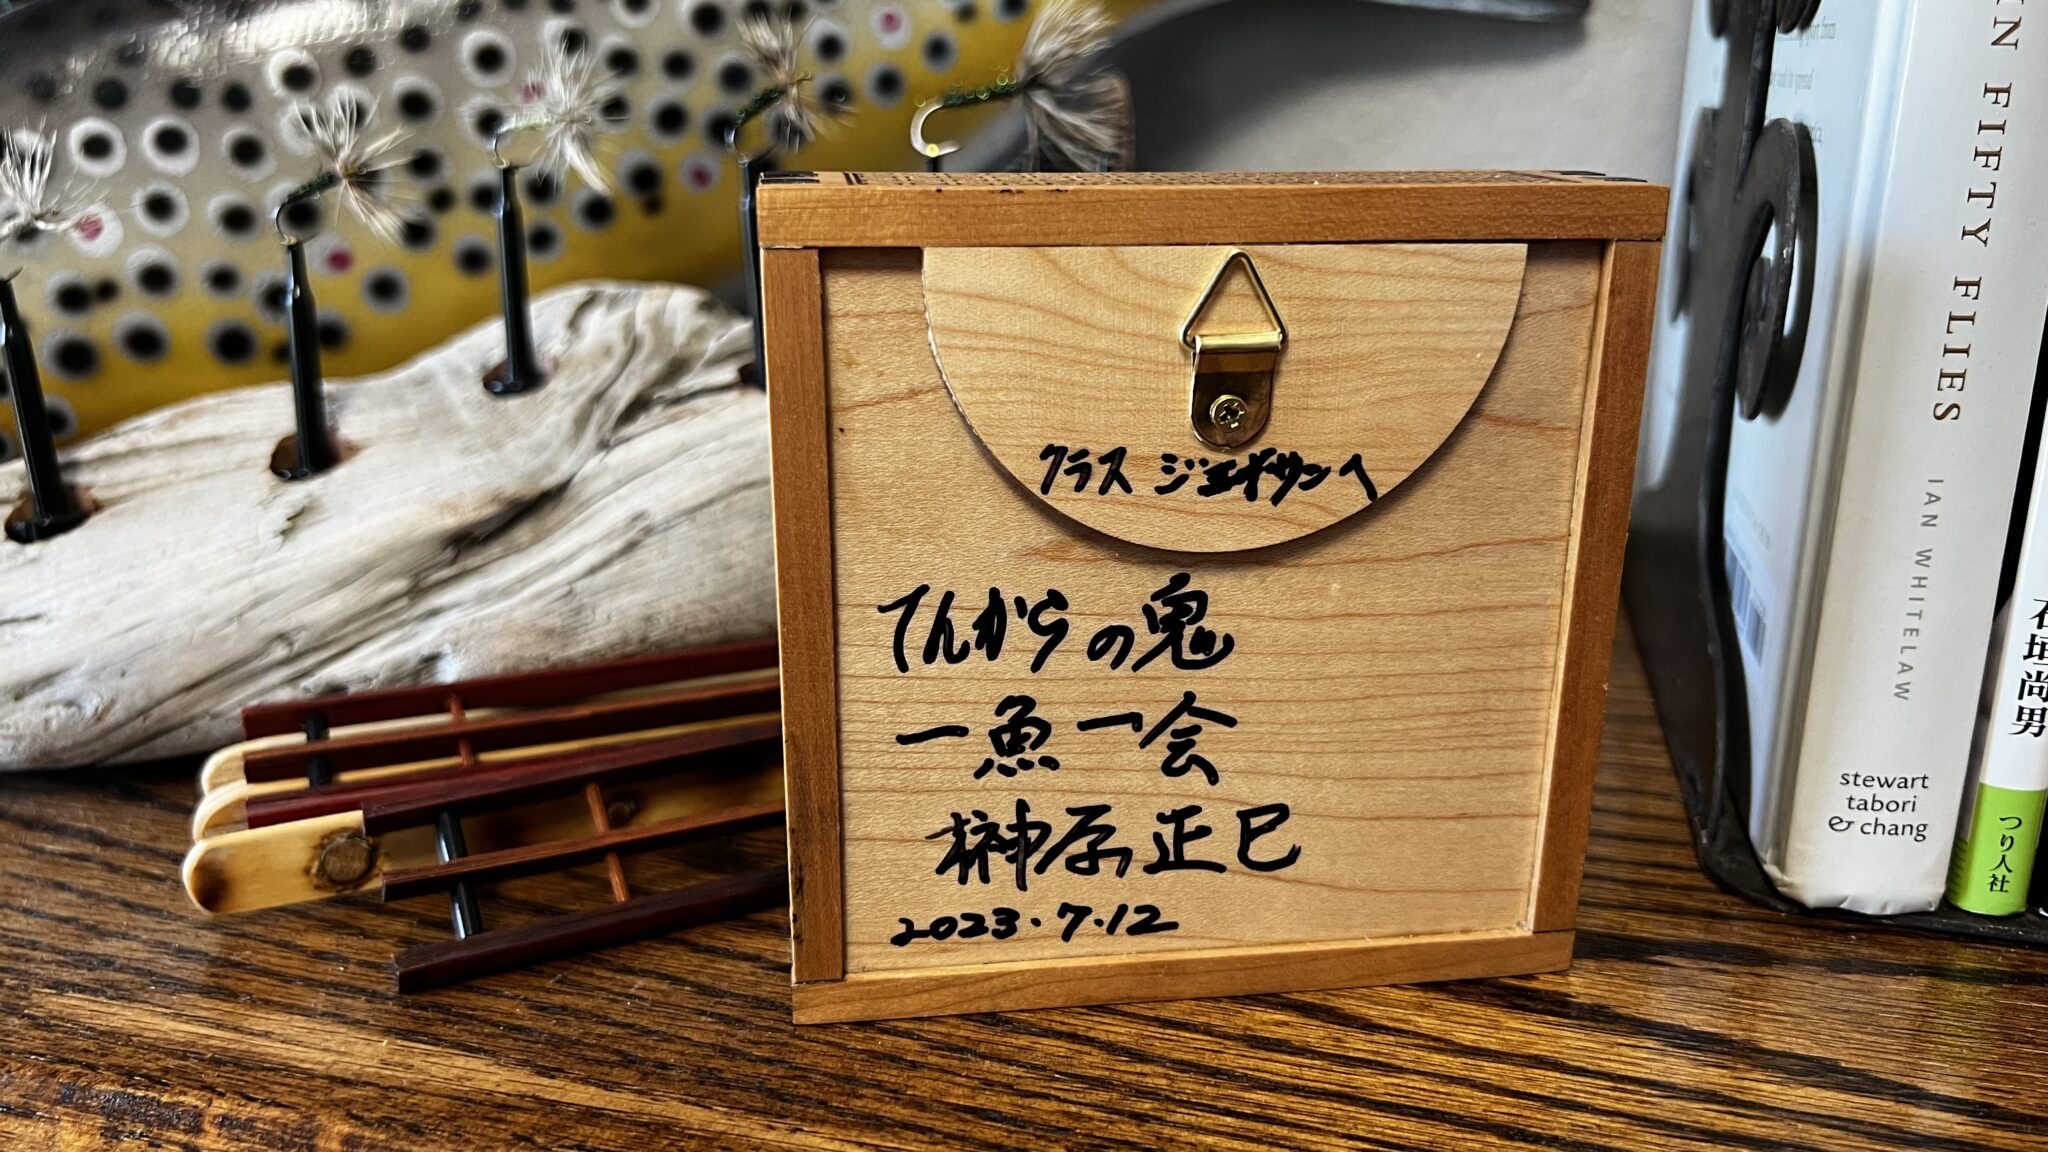 クラス ジェイサンへ
てんからの鬼
一魚一会
榊原正巳
2023.7.12
IN FIFTY FLIES
IAN WHITELAW
stewart
tabori
& chang
石垣尚男
つり人社